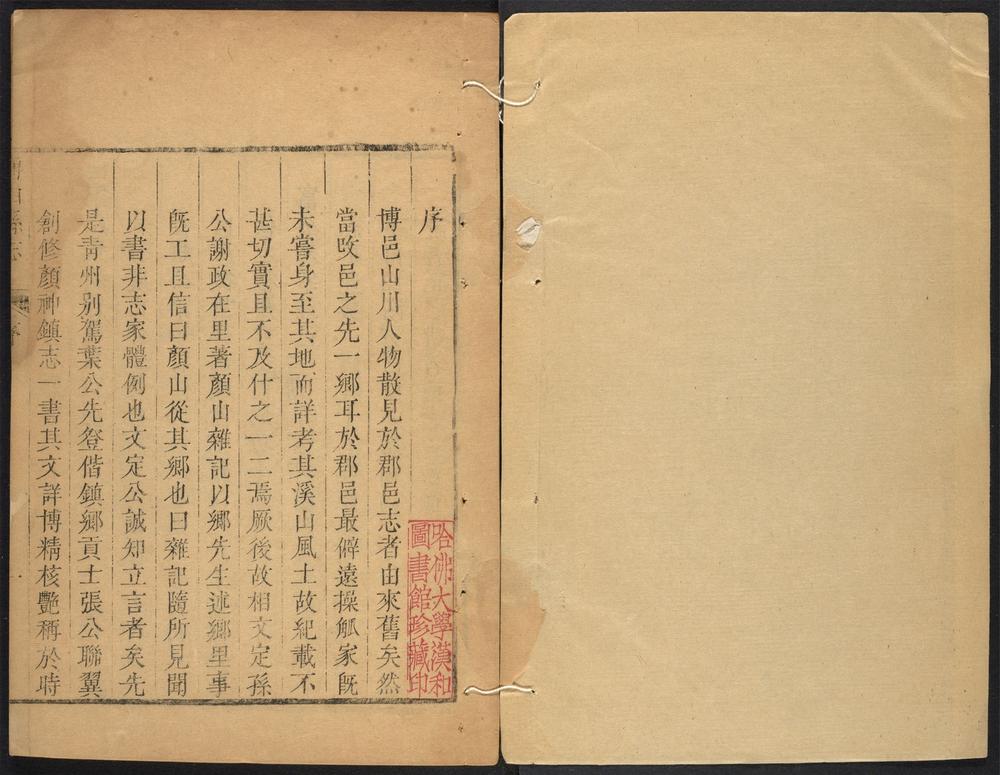 序
博邑山川人物散見於郡邑志者由來舊矣然
當改邑之先一鄉耳於郡邑最僻遠操觚家既
未嘗身至其地而詳考其溪山風土故紀載不
甚切實且不及什之一二焉厥後故相文定孫
公謝政在里著顏山雜記以鄉先生述鄉里事
旣工且信曰顏山從其鄉也曰雜記隨所見聞
以書非志家體例也文定公誠知立言者矣先
是青州别駕葉公先登偕鎮鄉貢士張公聯翼
創修顏神鎮志一書其文詳博精核艷稱於時
哈佛大學漢和
圖書館珍藏印